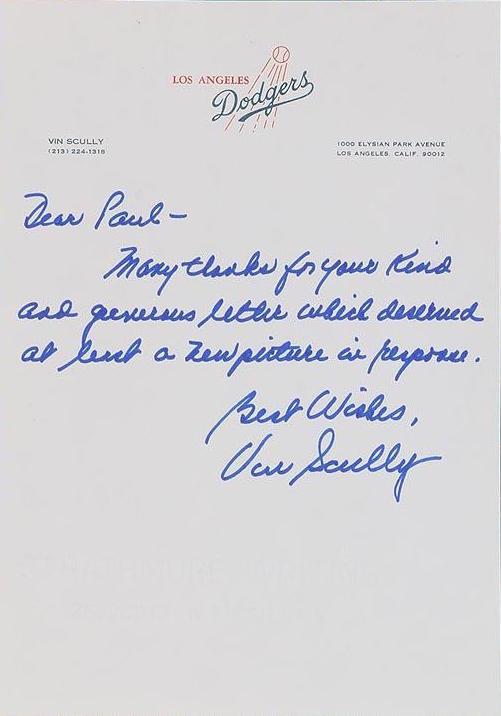 LOS ANGELES
Dodgers
VIN SCULLY
(213) 224-1318
1000 ELYSIAN PARK AVENUE
LOS ANGELES, CALIF. 90012
Dear Paul-
Many thanks for your kind
and generous letter which deserved
at least a new picture in response.
Best Wishes,
Vin Scully